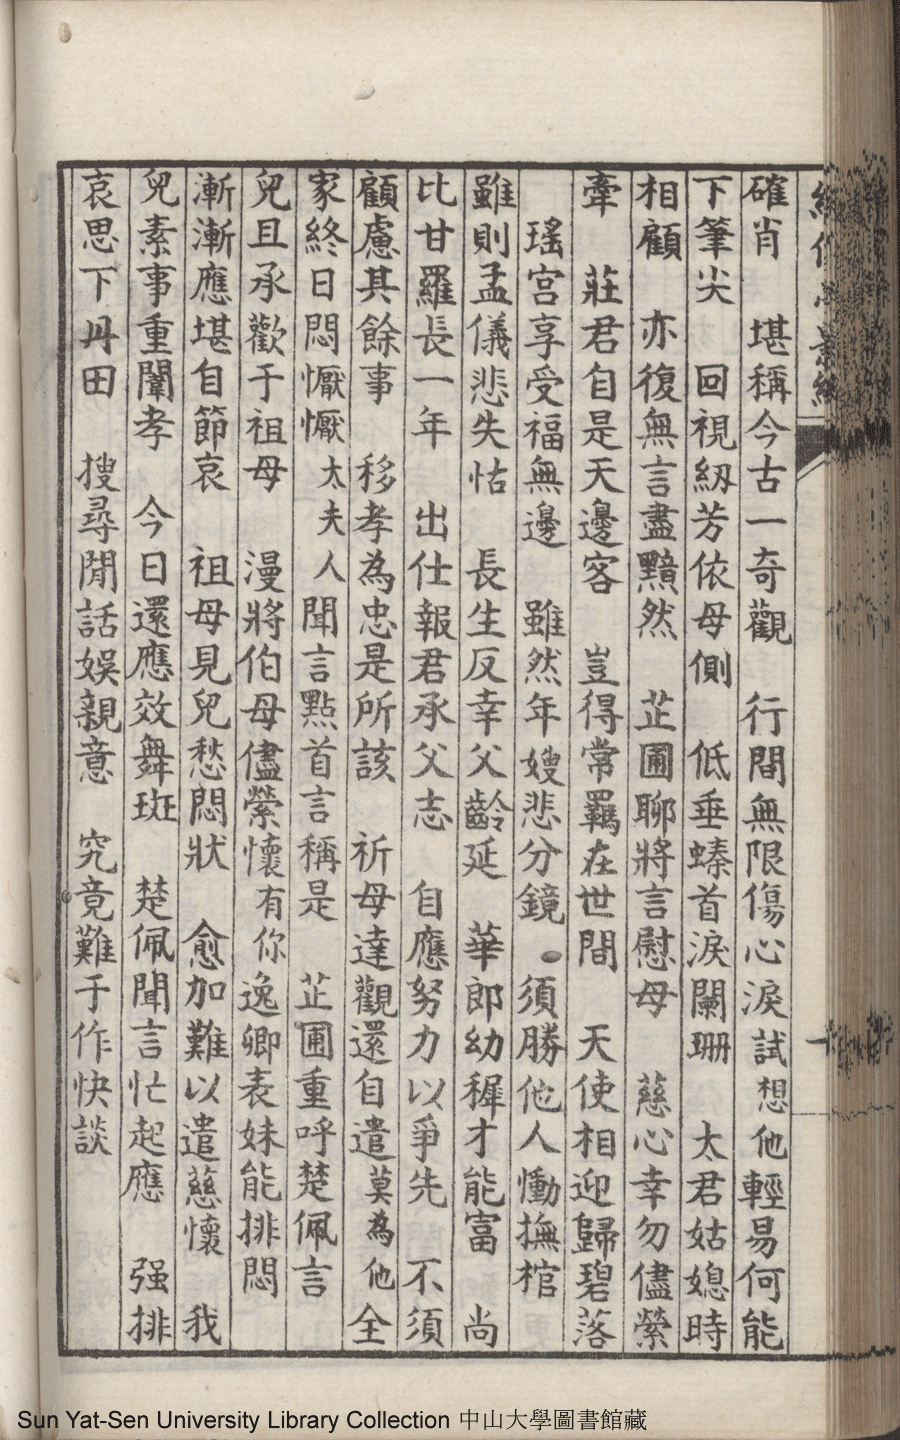 確肖　堪稱今古一奇觀　行間無限傷心淚試想他輕易何能
下筆尖　回視紉芳依母側　低垂螓首淚闌珊　太君姑媳時
相顧　亦復無言盡黯然　芷圃聊將言慰母　慈心幸勿儘縈
牽　莊君自是天邊客　豈得常羈在世間　天使相迎歸碧落
瑤宮享受福無邊　雖然年嫂悲分鏡　須勝他人慟撫棺
雖則孟儀悲失怙　長生反幸父齡延　華郎幼穉才能富　尚
比甘羅長一年　出仕報君承父志　自應努力以爭先　不須
顧慮其餘事　移孝為忠是所該　祈母達觀還自遣莫為他全
家終日悶懨懨太夫人聞言點首言稱是　芷圃重呼楚佩言
兒且承歡于祖母　漫將伯母儘縈懷有你逸卿表妹能排悶
漸漸應堪自節哀　祖母見兒愁悶狀　愈加難以遣慈懷　我
兒素事重闈孝　今日還應效舞斑　楚佩聞言忙起應　强排
哀思下丹田　搜尋閒話娛親意　究竟難于作快談
Sun Yat-Sen University Library Collection 中山大學圖書館藏